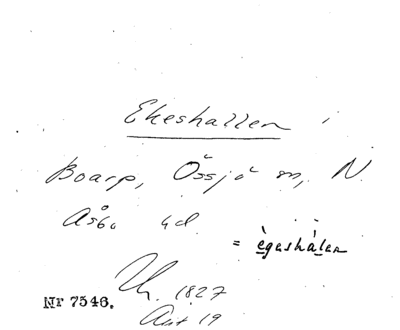 Ekeshallen
Boarp, Össjö sn, N.
Åsbo hd.
= ègeshàlen
Th. 1827
Nr 7546.
Akt 19